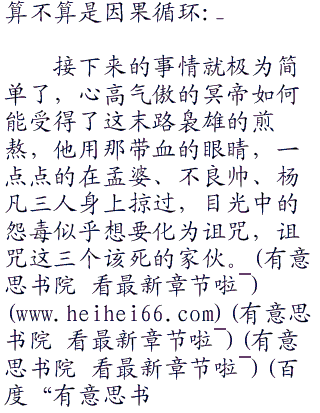 算不算是因果循环:_
接下来的事情就极为简
单了，心高气傲的冥帝如何
能受得了这末路袅雄的煎
熬，他用那带血的眼睛，一
点点的在孟婆、不良帅、杨
凡三人身上掠过，目光中的
怨毒似乎想要化为诅咒，诅
咒这三个该死的家伙。(有意
思书院 看最新章节啦¯)
(www.heihei66.com)(有意思
书院 看最新章节啦¯)(有意
思书院 看最新章节啦¯)(百
度“有意思书